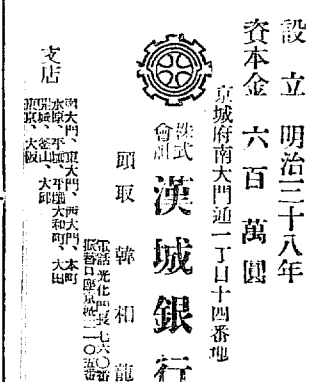 設立 明治三十八年
資本金 六百萬圓
京城府南大門通一丁目十四番地
株式會社 漢城銀行
頭取 韓相龍
電話光化門長七六〇番
振替口座京城二一〇五番
支店
南大門、東大門、西大門、本町
水原、平壤、平壤大和町、大田
開城、釜山、大邱
東京、大阪